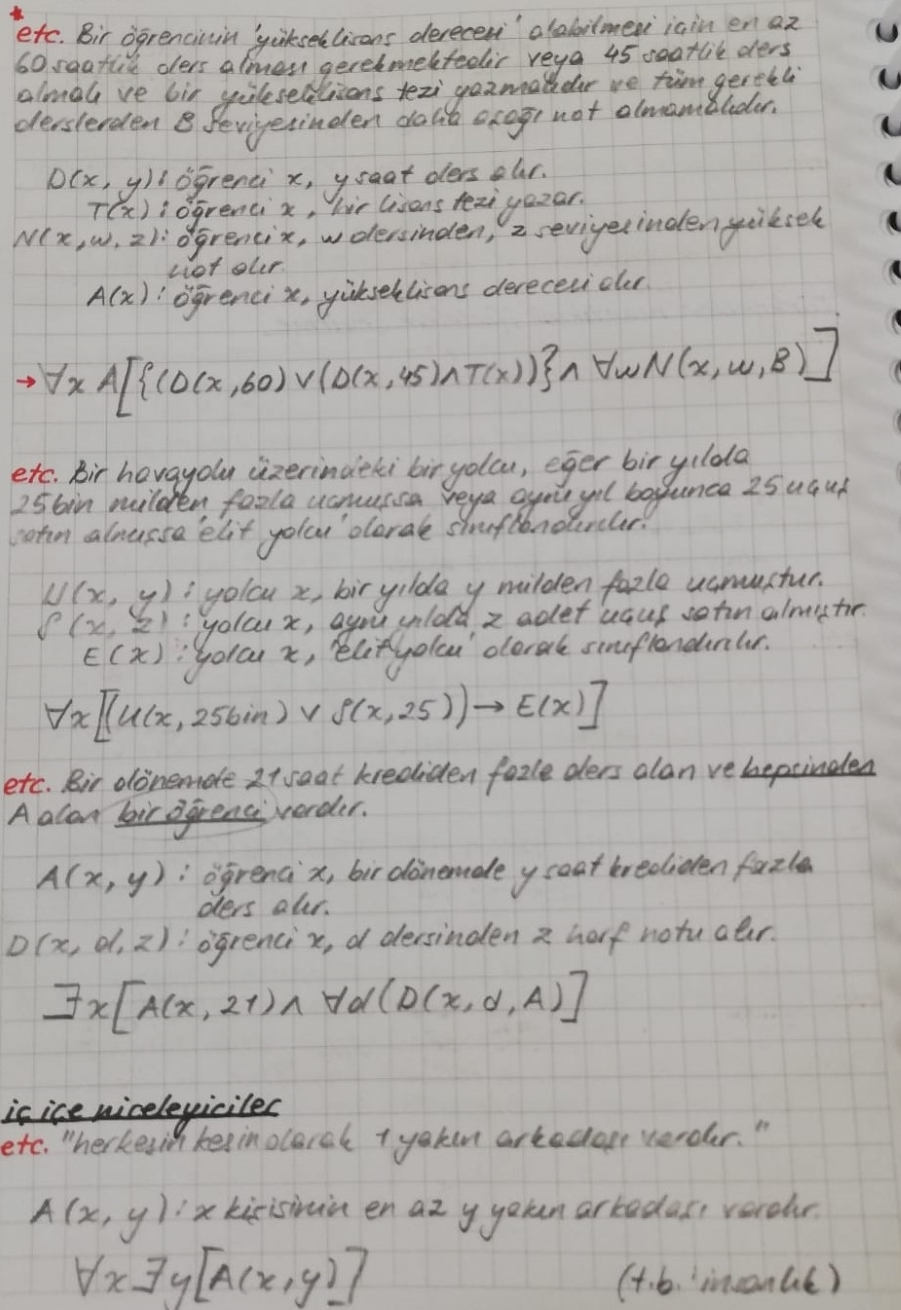 *
etc. Bir öğrencinin 'yükseklisans derecesi' alabilmesi için en az
60 saatlik ders alması gerekmektedir veya 45 saatlik ders
almalı ve bir yükseklisans tezi yazmalıdır ve tüm gerekli
derslerden B seviyesinden daha aşağı not almamalıdır.
D(x, y): öğrenci x, y saat ders alır.
T(x): öğrenci x, bir lisans tezi yazar.
N(x, w, z): öğrenci x, w dersinden, z seviyesinden yüksek
not alır.
A(x): öğrenci x, yükseklisans derecesi alır.
→ ∀x A[{(D(x,60) ∨ (D(x,45) ∧ T(x))} ∧ ∀w N(x, w, B)]
etc. Bir havayolu üzerindeki bir yolcu, eğer bir yılda
25 bin milden fazla uçmuşsa veya aynı yıl boyunca 25 uçuş
satın almışsa 'elit yolcu' olarak sınıflandırılır.
U(x, y): yolcu x, bir yılda y milden fazla uçmuştur.
S(x, z): yolcu x, aynı yılda z adet uçuş satın almıştır.
E(x): yolcu x, 'elit yolcu' olarak sınıflandırılır.
∀x[(U(x, 25bin) ∨ S(x,25)) → E(x)]
etc. Bir dönemde 21 saat krediden fazla ders alan ve hepsinden
A alan bir öğrenci vardır.
A(x, y): öğrenci x, bir dönemde y saat krediden fazla
ders alır.
D(x, d, z): öğrenci x, d dersinden z harf notu alır.
∃x[A(x, 21) ∧ ∀d(D(x, d, A)]
iç içe niceleyiciler
etc. "herkesin kesin olarak 1 yakın arkadaşı vardır."
A(x, y): x kişisinin en az y yakın arkadaşı vardır.
∀x∃y[A(x,y)] (t.b. 'insanlık)